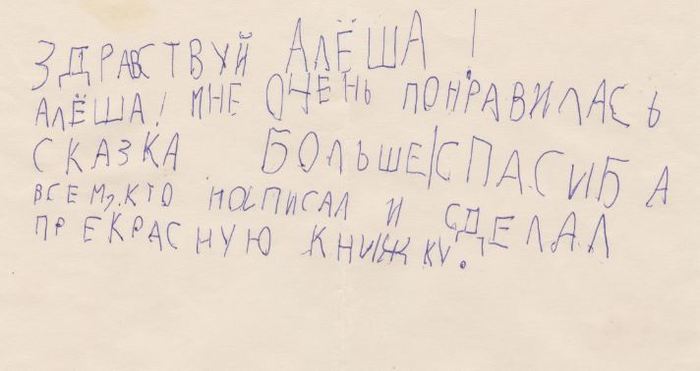 ЗДРАВСТВУЙ АЛЁША!
АЛЁША! МНЕ ОЧЕНЬ ПОНРАВИЛАСЬ
СКАЗКА БОЛЬШЕ|СПАСИБА
ВСЕМ, КТО НАПИСАЛ И СДЕЛАЛ
ПРЕКРАСНУЮ КНИЖКУ.